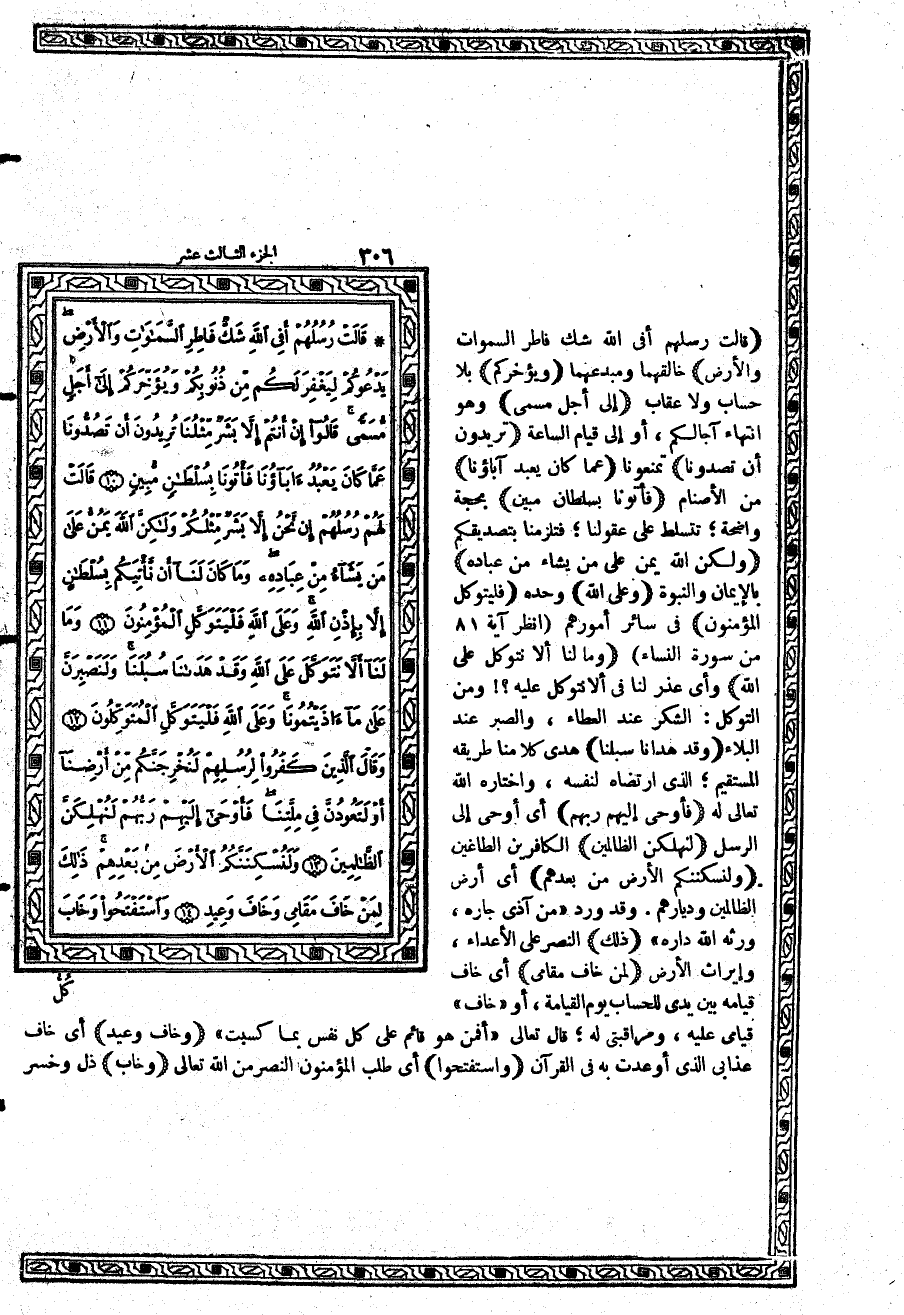 ٣٠٦ الجزء الثالث عشر
* قَالَتْ رُسُلُهُمْ أَفِى ٱللَّهِ شَكٌّ فَاطِرِ ٱلسَّمَٰوَٰتِ وَٱلْأَرْضِ ۖ
يَدْعُوكُمْ لِيَغْفِرَ لَكُم مِّن ذُنُوبِكُمْ وَيُؤَخِّرَكُمْ إِلَىٰٓ أَجَلٍ
مُّسَمًّى ۚ قَالُوٓا۟ إِنْ أَنتُمْ إِلَّا بَشَرٌ مِّثْلُنَا تُرِيدُونَ أَن تَصُدُّونَا
عَمَّا كَانَ يَعْبُدُ ءَابَآؤُنَا فَأْتُونَا بِسُلْطَٰنٍ مُّبِينٍ ١٠ قَالَتْ
لَهُمْ رُسُلُهُمْ إِن نَّحْنُ إِلَّا بَشَرٌ مِّثْلُكُمْ وَلَٰكِنَّ ٱللَّهَ يَمُنُّ عَلَىٰ
مَن يَشَآءُ مِنْ عِبَادِهِۦ ۖ وَمَا كَانَ لَنَآ أَن نَّأْتِيَكُم بِسُلْطَٰنٍ
إِلَّا بِإِذْنِ ٱللَّهِ ۚ وَعَلَى ٱللَّهِ فَلْيَتَوَكَّلِ ٱلْمُؤْمِنُونَ ١١ وَمَا
لَنَآ أَلَّا نَتَوَكَّلَ عَلَى ٱللَّهِ وَقَدْ هَدَىٰنَا سُبُلَنَا ۚ وَلَنَصْبِرَنَّ
عَلَىٰ مَآ ءَاذَيْتُمُونَا ۚ وَعَلَى ٱللَّهِ فَلْيَتَوَكَّلِ ٱلْمُتَوَكِّلُونَ ١٢
وَقَالَ ٱلَّذِينَ كَفَرُوا۟ لِرُسُلِهِمْ لَنُخْرِجَنَّكُم مِّنْ أَرْضِنَآ
أَوْ لَتَعُودُنَّ فِى مِلَّتِنَا ۖ فَأَوْحَىٰٓ إِلَيْهِمْ رَبُّهُمْ لَنُهْلِكَنَّ
ٱلظَّٰلِمِينَ ١٣ وَلَنُسْكِنَنَّكُمُ ٱلْأَرْضَ مِنۢ بَعْدِهِمْ ۚ ذَٰلِكَ
لِمَنْ خَافَ مَقَامِى وَخَافَ وَعِيدِ ١٤ وَٱسْتَفْتَحُوا۟ وَخَابَ
كُلُّ
(قالت رسلهم أفى الله شك فاطر السموات
والأرض) خالقهما ومبدعهما (ويؤخركم) بلا
حساب ولا عقاب (إلى أجل مسمى) وهو
انتهاء آجالكم ، أو إلى قيام الساعة (تريدون
أن تصدونا) تمنعونا (عما كان يعبد آباؤنا)
من الأصنام (فأتونا بسلطان مبين) بحجة
واضحة ؛ تتسلط على عقولنا ؛ فتلزمنا بتصديقكم
(ولكن الله يمن على من يشاء من عباده)
بالإيمان والنبوة (وعلى الله) وحده (فليتوكل
المؤمنون) فى سائر أمورهم (انظر آية ٨١
من سورة النساء) (وما لنا ألا نتوكل على
الله) وأى عذر لنا فى ألا نتوكل عليه ؟! ومن
التوكل : الشكر عند العطاء ، والصبر عند
البلاء (وقد هدانا سبلنا) هدى كلا منا طريقه
المستقيم ؛ الذى ارتضاه لنفسه ، واختاره الله
تعالى له (فأوحى إليهم ربهم) أى أوحى إلى
الرسل (لنهلكن الظالمين) الكافرين الطاغين
(ولنسكننكم الأرض من بعدهم) أى أرض
الظالمين وديارهم . وقد ورد «من آذى جاره ،
ورثه الله داره» (ذلك) النصر على الأعداء ،
وإيراث الأرض (لمن خاف مقامى) أى خاف
قيامه بين يدى للحساب يوم القيامة ، أو «خاف»
قيامى عليه ، ومراقبتى له ؛ قال تعالى «أفمن هو قائم على كل نفس بما كسبت» (وخاف وعيد) أى خاف
عذابى الذى أوعدت به فى القرآن (واستفتحوا) أى طلب المؤمنون النصر من الله تعالى (وخاب) ذل وخسر